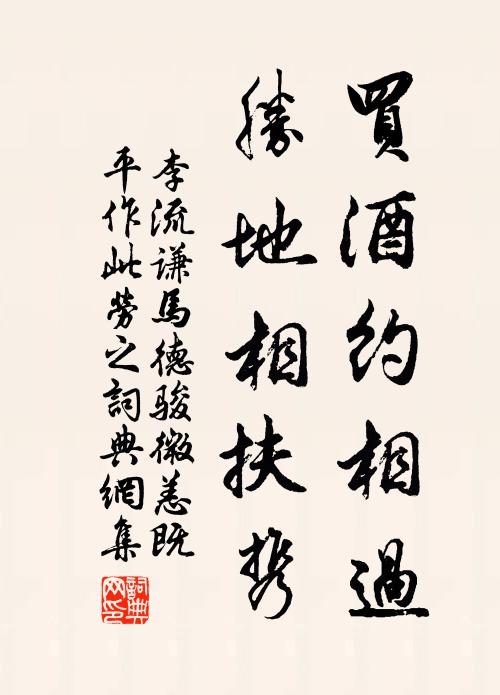 買酒約相過
勝地相扶携
李流謙馬德駿微恙既
平作此勞之詞典網集
詞典
网印